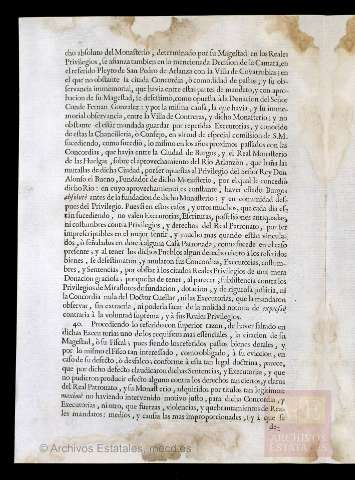 cho absoluto del Monasterio, determinado por su Magestad en los Reales
Privilegios, se afianza tambien en la mencionada Decision de la Camara, en
el referido Pleyto de San Pedro de Arlanza con la Villa de Covarrubias; en
el que no obstante la citada Concordia, ò comunidad de pastos, y su ob-
servancia immemorial, que havia entre estas partes de mandato, y con apro-
bacion de su Magestad, se desestimò, como opuesta à la Donacion del Señor
Conde Fernan Gonzalez: y por la misma causa, la que havia, y su imme-
morial observancia, entre la Villa de Contreras, y dicho Monasterio; y no
obstante el estàr mandada guardar por repetidas Executorias, y conocido
de ellas la Chancilleria, ò Consejo, en virtud de especial comission de S.M.
sucediendo, como sucediò, lo mismo en los años proximos passados con las
Concordias, que havia entre la Ciudad de Burgos, y el Real Monasterio
de las Huelgas, sobre el aprovechamiento del Rio Arlanzon, que baña las
murallas de dicha Ciudad, por ser opuestas al Privilegio del Señor Rey Don
Alonso el Bueno, Fundador de dicho Monasterio, por el qual le concediò
dicho Rio: en cuyo aprovechamiento es constante, haver estado Burgos
absolutè antes de la fundacion de dicho Monasterio; y en comunidad des-
pues del Privilegio. Pues si en estos casos, y otros muchos, que cada dia es-
tàn sucediendo, no valen Executorias, Escrituras, possessiones antiquadas,
ni costumbres contra Privilegios, y derechos del Real Patronato, por ser
imprescriptibles en el mejor sentir, y mucho mas quando estàn vincula-
dos, ò señalados en dote à alguna Casa Patronada, como sucede en el caso
presente; y al tener los dichos Pueblos algun derecho quieto à los referidos
bienes, se desestimaron, y anularon sus Concordias, Executorias, costum-
bres, y Sentencias, por obstar à los citados Reales Privilegios de una mera
Donacion graciosa: por què ha de tener, al parecer, subsistencia contra los
Privilegios de Miraflores de fundacion, dotacion, y de rigurosa justicia, ni
la Concordia nula del Doctor Cuellar, ni las Executorias, que la mandaron
observar, sin excusarla, ni poderla sacar de la nulidad notoria de expressè
contraria à la voluntad suprema, y à sus Reales Privilegios.
40. Procediendo lo referido con superior razon, de haver faltado en
dichas Executorias uno de los requisitos mas essenciales, la citacion de su
Magestad, ò su Fiscal; pues siendo los referidos pastos bienes dotales, y
por lo mismo el Fisco tan interessado, como obligado, à su eviccion, en
caso de su defecto, ò desfalco, conforme à esta tan legal doctrina, prueba,
que por dicho defecto claudicaron dichas Sentencias, y Executorias, y que
no pudieron producir efecto alguno contra los derechos tan ciertos, y claros
del Real Patronato, y su Monasterio, adquiridos por titulos tan legitimos
maximè no haviendo intervenido motivo justo, para dicha Concordia, y
Executorias, ni otro, que fuerzas, violencias, y quebrantamientos de Rea-
les mandatos: medios, y causas las mas improporcionadas, (y à que se
de-
© Archivos Estatales, mecd.es
ARCHIVOS
ESTATALES